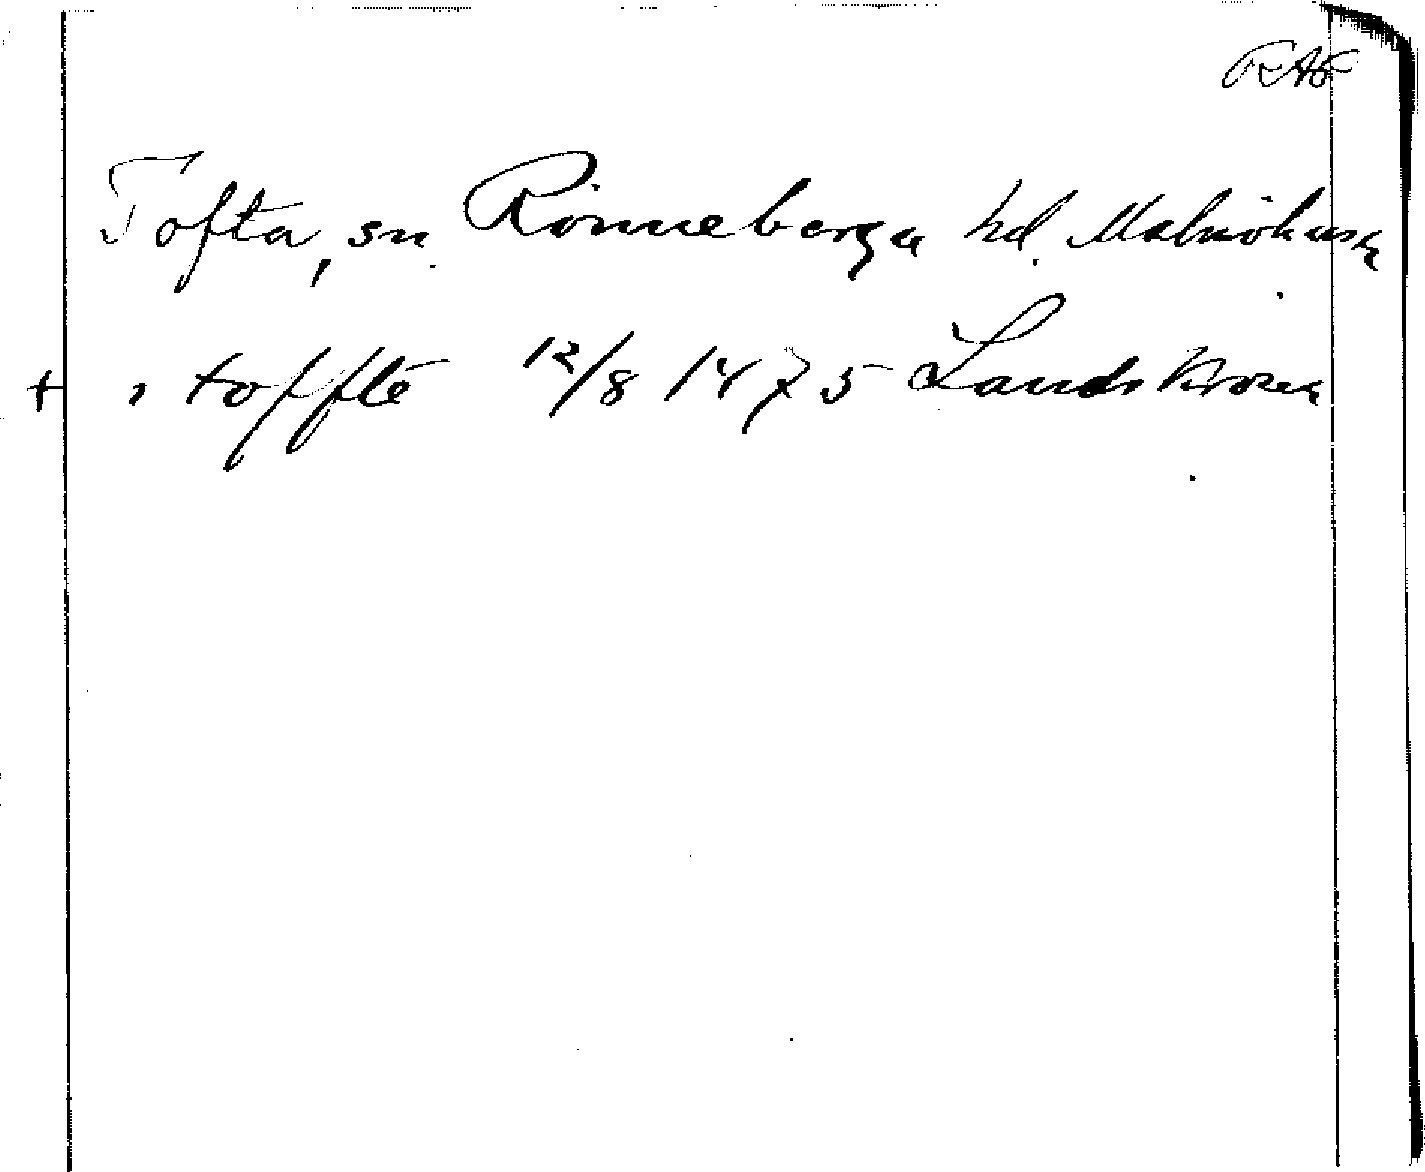 RAP
Tofta, sn. Rönneberga hd. Malmöhus l.
+ i toffte 12/8 1475 Landskrona